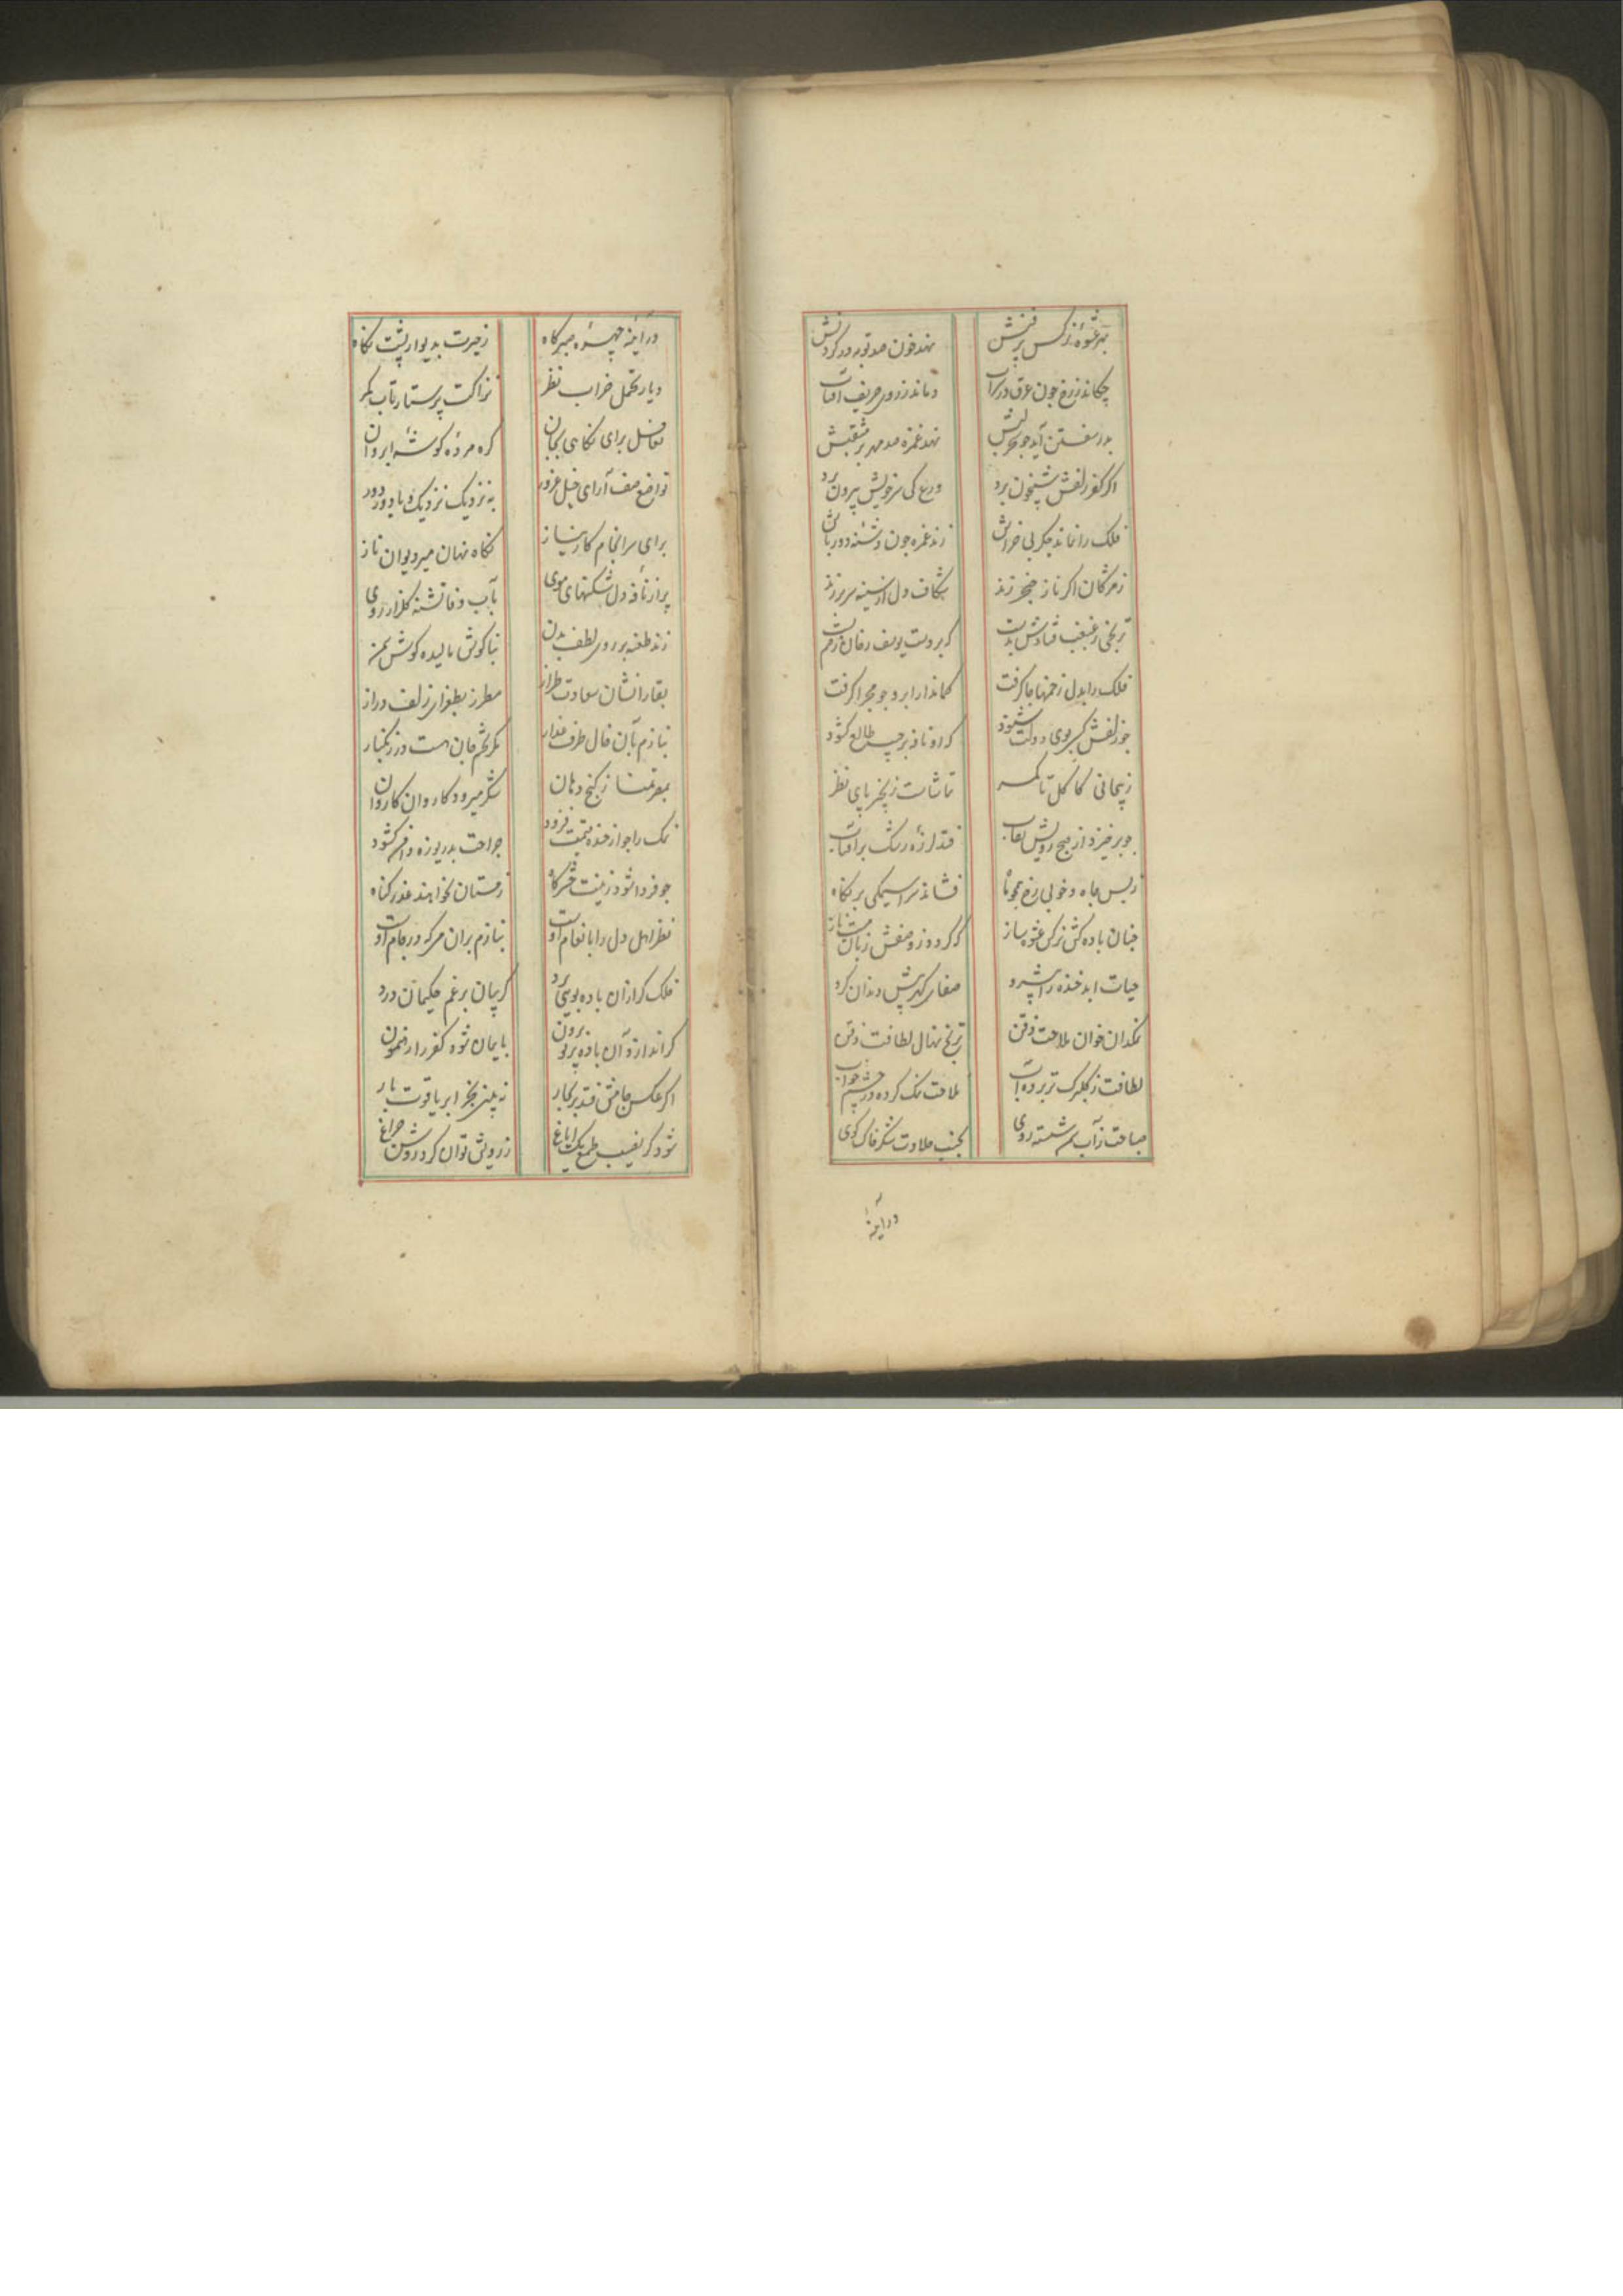 بهر عشوهٔ نرکس پرفنش
نهد خون صد توبه در کردنش
چکاند ز رخ چون عرق در شراب
دماند ز روی حریف آفتاب
بدر سفتن آید چو لبش
نهد غمزه صد مهر بر مثقبش
اکر کفر زلفش شبیخون برد
ورع کی سر خویش بیرون برد
فلک را نماند جکر بی خراش
زند غمزه چون دشنهٔ دورباش
ز مژکان اکر ناز خنجر زند
شکاف دل از سینه سر برزند
ترنجی ز غبغب فتادش بدست
که بر دست یوسف رخان زخم بست
فلک را بدل زخمها جا کرفت
کماندار ابرو چو مجرا کرفت
چو زلفش کس بوی دولت شنود
که او نافه بر جیب طالع کشود
ز پیچانی کاکل تا کمر
تماشاست زنجیر پای نظر
چو برخیزد از صبح رویش نقاب
فتد لرزهٔ رشک بر آفتاب
ز بس جاه و خوبی رخ همچو ماه
فشاند سراسیمکی بر نکاه
چنان باده کش نرکس عشوه ساز
که کردد ز وصفش زبان مست ناز
حیات ابد خنده را پیشرو
صفای کهرپیش دندان کرو
نمکدان خوان ملاحت ذقن
ترنج نهال لطافت ذقن
لطافت ز کلبرک تر برده آب
ملاحت نمک کرده در چشم خواب
صباحت ز آب کهر شسته روی
بجنب حلاوت شکر خاک کوی
در آینه
در آینه چهره صبرکاه
ز حیرت بدیوار پشت نکاه
دیار تحمل خراب نظر
نزاکت پرستار تاب کمر
تغافل برای نکاهی بجان
کره مردهٔ کوشهٔ ابروان
تواضع صف آرای خیل غرور
به نزدیک نزدیک و با دور دور
برای سرانجام کار نیاز
نکاه نهان میر دیوان ناز
پر از نافهٔ دل شکنهای موی
بآب وفا تشنه کلزار روی
زند طعنه بر روی لطف بدن
بناکوش مالیده کوش سمن
بقا را نشان سعادت طراز
مطرز بطغرای زلف دراز
بنازم بآن خال طرف عذار
مکر تخم جان هست در زنکبار
بمصر تمنا ز کنج دهان
شکر میرود کاروان کاروان
نمک را چو از خنده قیمت فزود
جراحت بدریوزه دامن کشود
چو فردا شود زینت حشرکاه
ز مستان نخواهند عذر کناه
نظر اهل دل را بانعام اوست
بنازم بر آن می که در جام اوست
فلک کر از آن باده بویی برد
کریبان بر غم حکیمان درد
کر اندازد آن باده پرتو برون
بایمان شود کفر را رهنمون
اکر عکس جامش فتد بر بحار
نه بینی بجز ابر یاقوت بار
شود کر نصیب طمع یک ایاغ
ز رویش توان کرد روشن چراغ